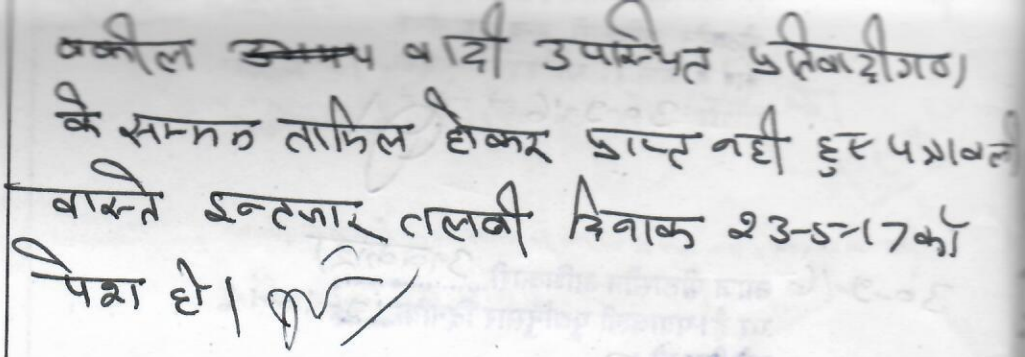 वकील वादी उपस्थित प्रतिवादीगण
के सम्मन तामिल होकर प्राप्त नही हुए पत्रावली
वास्ते इन्तजार तलबी दिनांक 23-5-17 को
पेश हो।